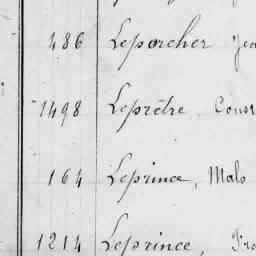 486 Leporcher Jea
1498 Leprêtre, Const
164 Leprince, Malo
1214 Leprince, Fra